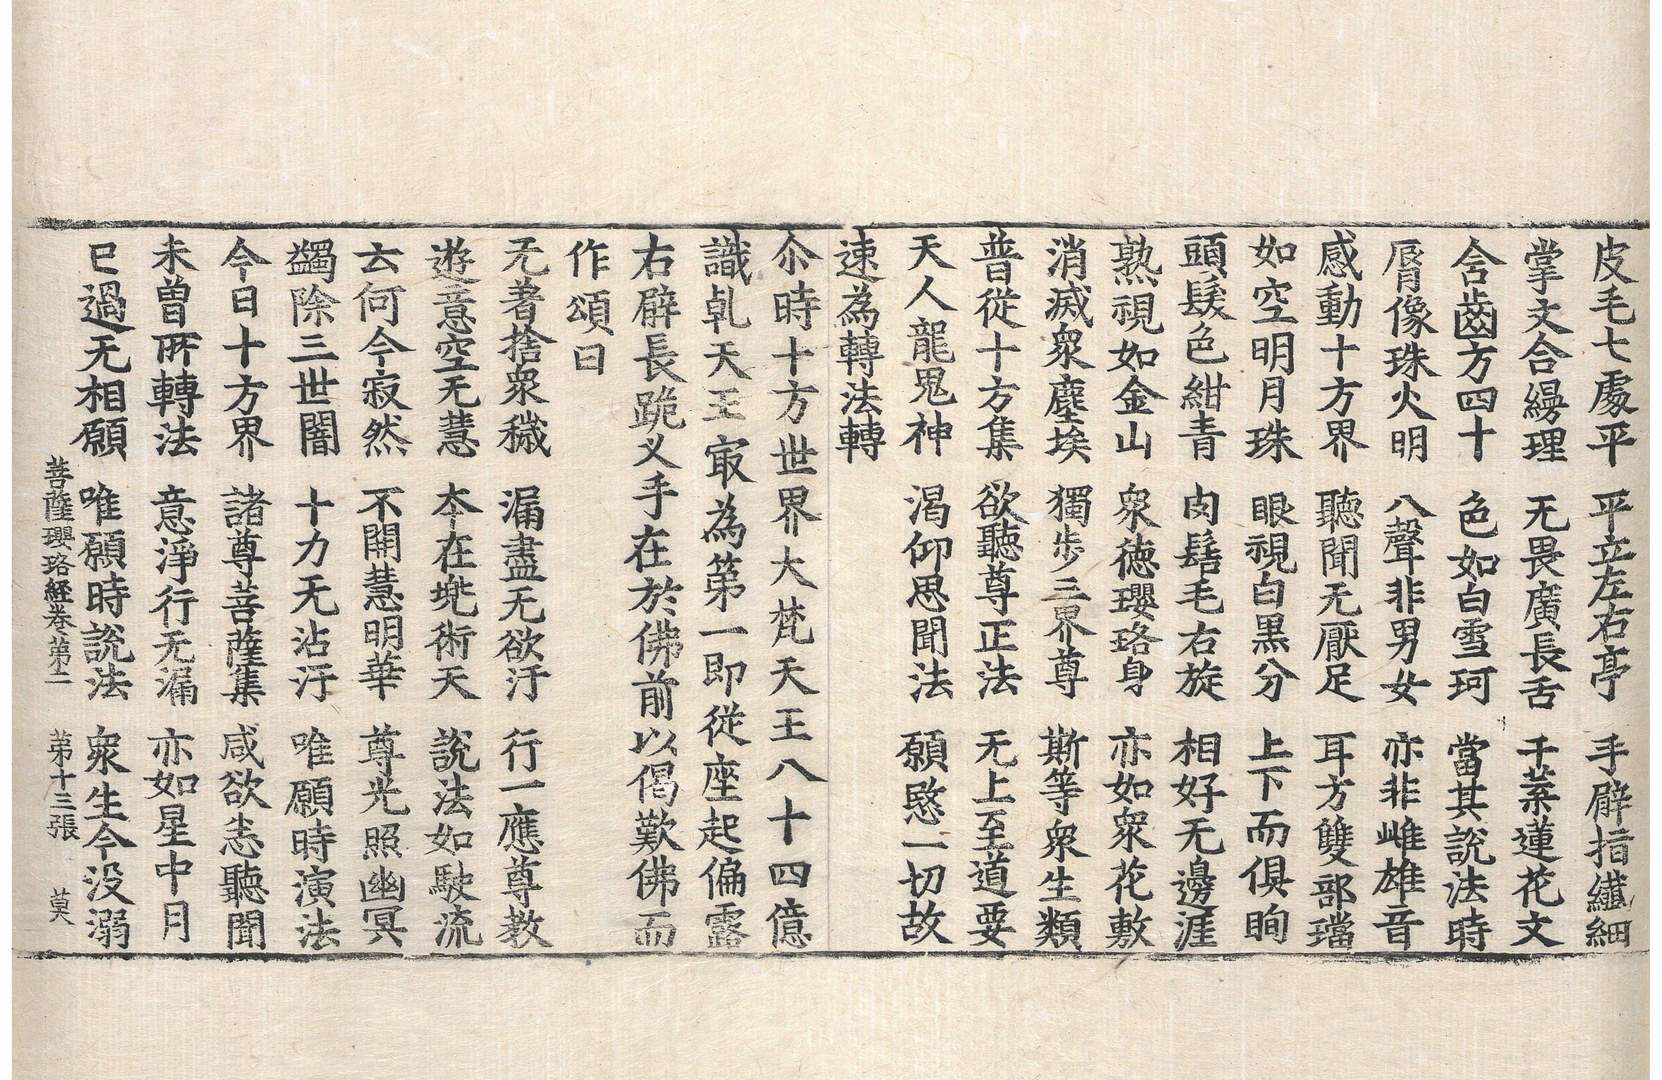 皮毛七處平 平立左右亭 手臂指纖細
掌文合縵理 无畏廣長舌 千葉蓮花文
含齒方四十 色如白雪珂 當其說法時
脣像珠火明 八聲非男女 亦非雌雄音
感動十方界 聽聞无厭足 耳方雙部璫
如空明月珠 眼視白黑分 上下而俱眴
頭髮色紺青 肉髻毛右旋 相好无邊涯
熟視如金山 衆德瓔珞身 亦如衆花敷
消滅衆塵埃 獨步三界尊 斯等衆生類
普從十方集 欲聽尊正法 无上至道要
天人龍鬼神 渴仰思聞法 願愍一切故
速為轉法轉
尒時十方世界大梵天王八十四億
識乹天王㝡為第一即從座起偏露
右臂長跪叉手在於佛前以偈歎佛而
作頌曰
无著捨衆穢 漏盡无欲汙 行一應尊教
遊意空无慧 本在兠術天 說法如駛流
云何今寂然 不開慧明華 尊光照幽冥
蠲除三世闇 十力无沾汙 唯願時演法
今日十方界 諸尊菩薩集 咸欲恙聽聞
未曾所轉法 意淨行无漏 亦如星中月
已過无相願 唯願時說法 衆生今没溺
菩薩瓔珞經卷第二 第十三張 莫